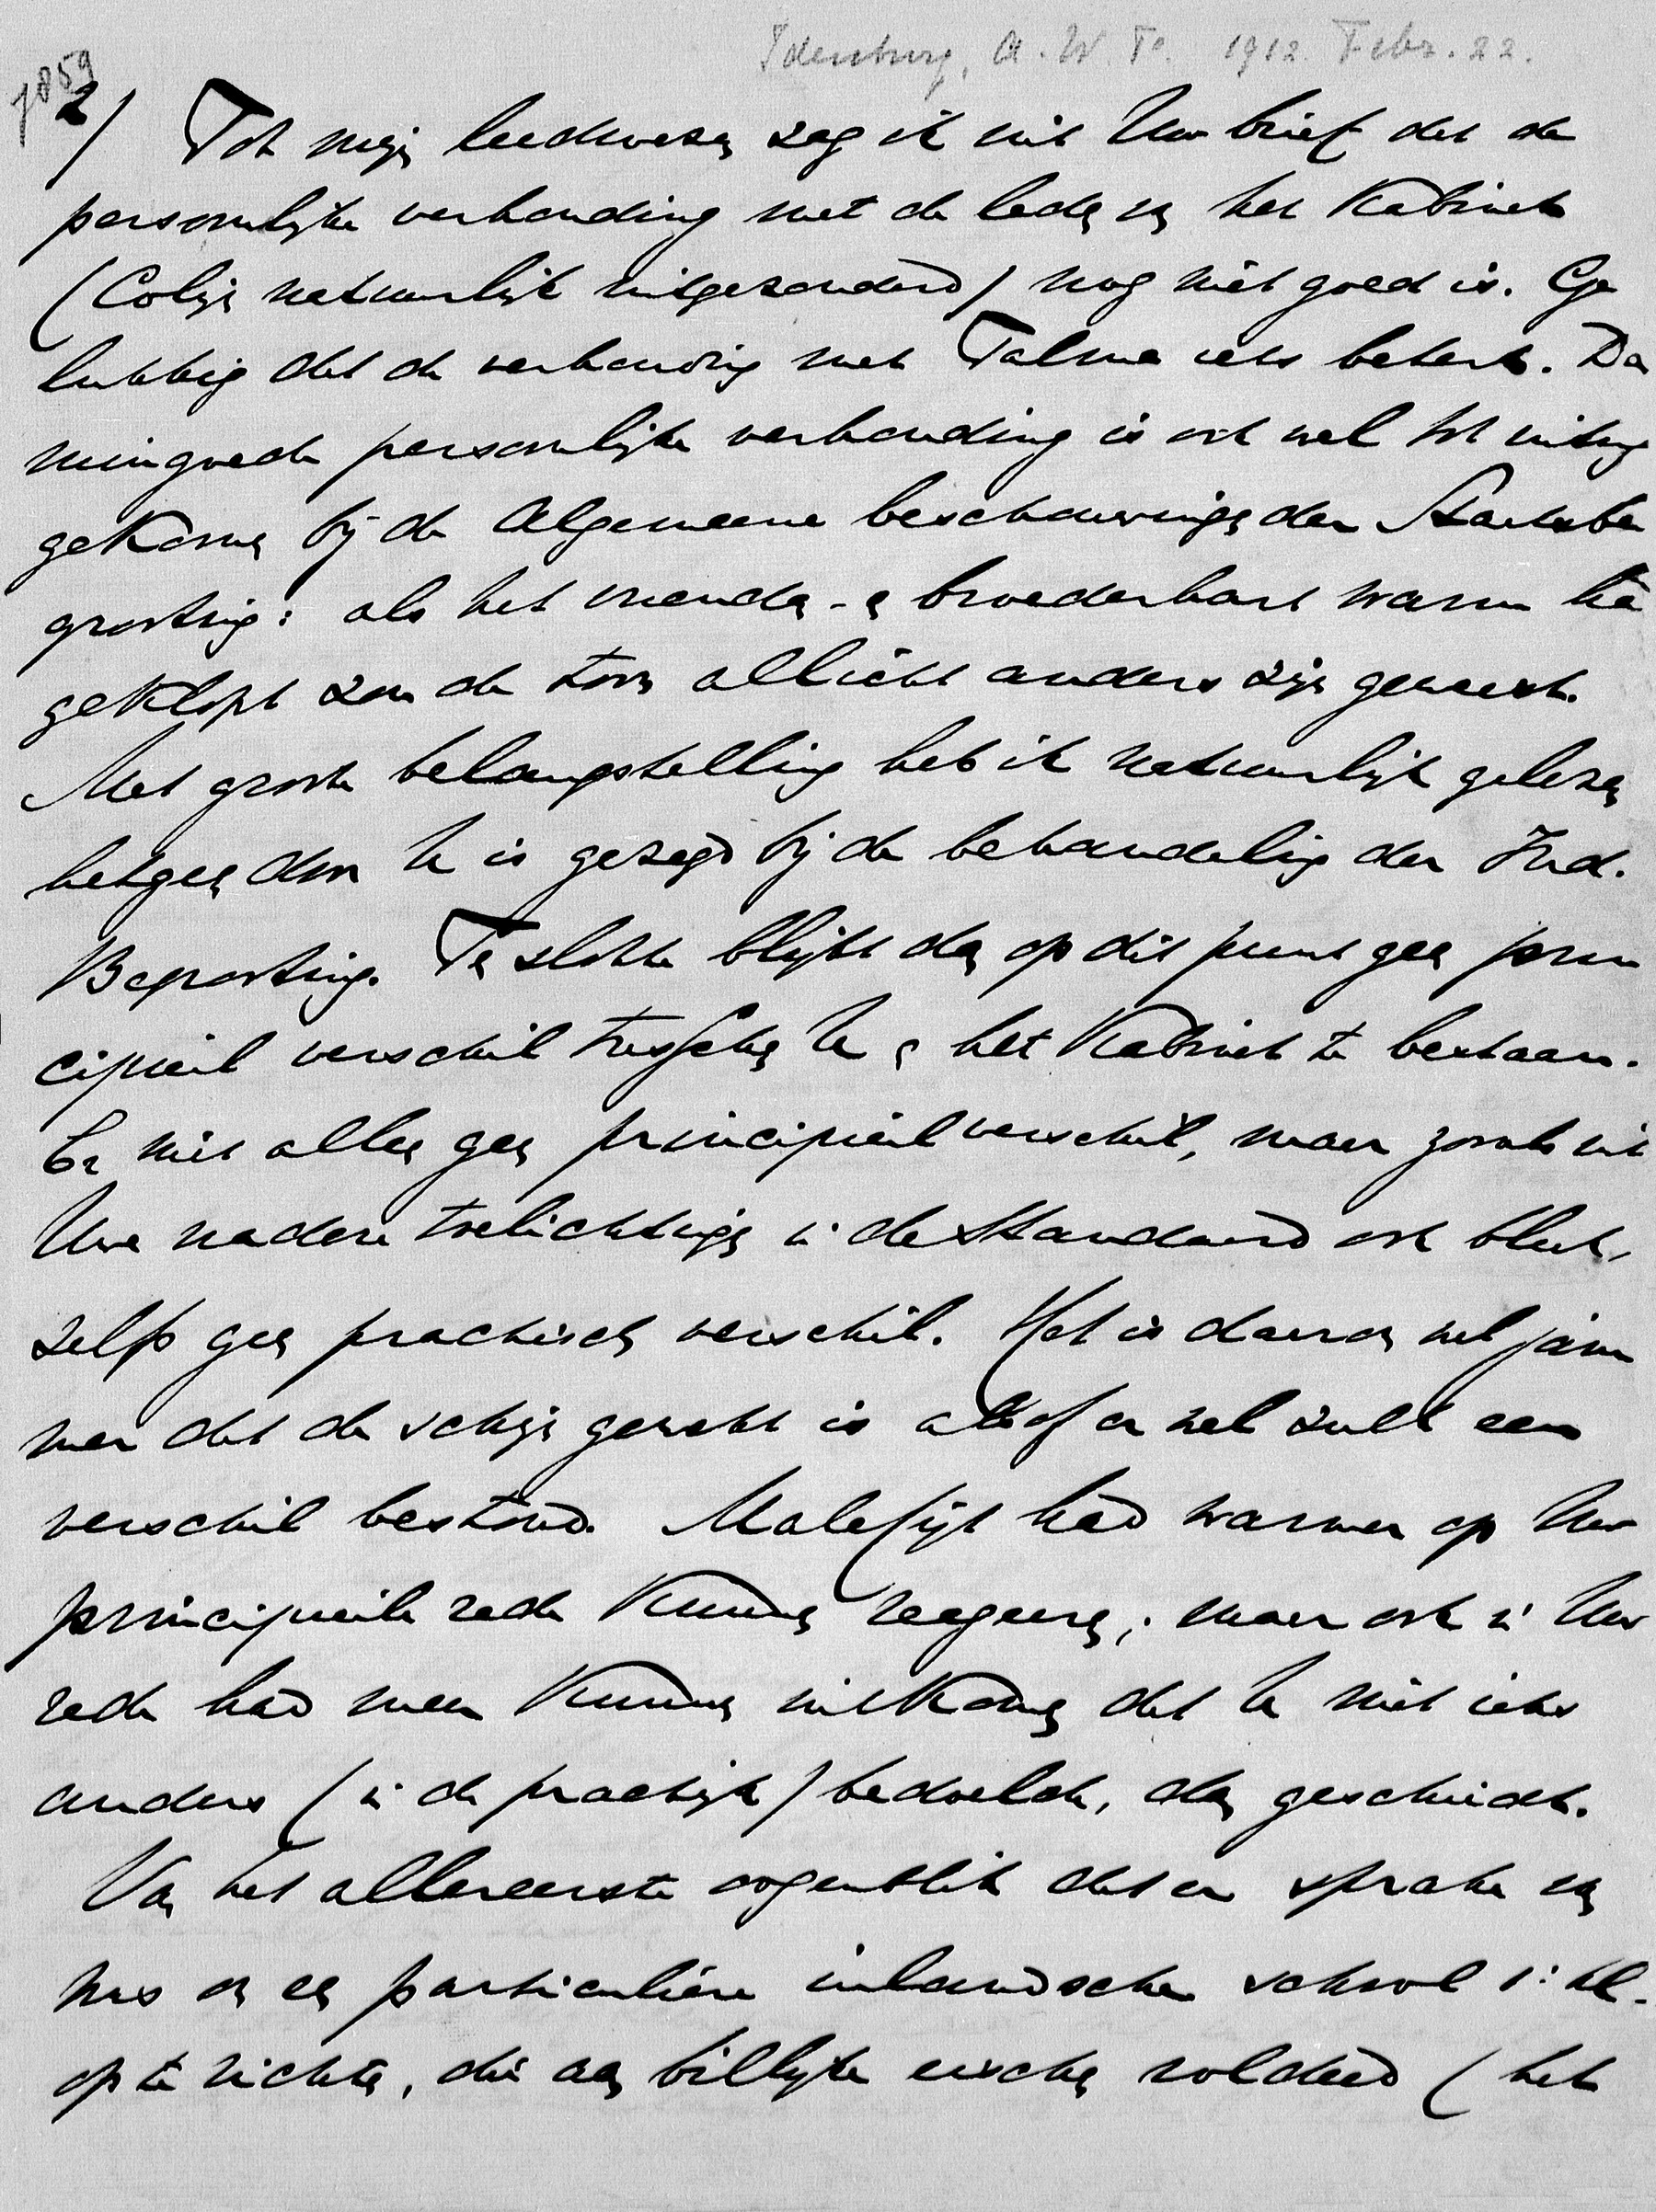 Idenburg, A. W. F. 1912 Febr. 22.
7859
2/ Tot mijn leedwezen zag ik uit Uw brief dat de
persoonlijke verhouding met de leden van het Kabinet
(Colijn natuurlijk uitgezonderd) nog niet goed is. Ge
lukkig dat de verhouding met Talma iets betert. De
mingoede persoonlijke verhouding is ook wel tot uiting
gekomen bij de Algemeene beschouwingen der Staatsbe
grooting: als het vrienden- en broederhart warm had
geklopt zou de toon allicht anders zijn geweest.
Met groote belangstelling heb ik natuurlijk gelezen
hetgeen door U is gezegd bij de behandeling der Ind.
Begrooting. Ten slotte blijkt dan op dit punt geen prin
cipieel verschil tusschen U en het Kabinet te bestaan.
En niet alleen geen principieel verschil, maar zooals uit
Uwe nadere toelichtingen in de Standaard ook bleek,
zelfs geen practisch verschil. Het is daarom wel jam
mer dat de schijn gewekt is alsof er wel zulk een
verschil bestond. Malefijt had warmer op Uw
principieele rede kunnen reageeren; maar ook in Uw
rede had meer kunnen uitkomen dat U niet iets
anders (in de practijk) bedoelde, dan geschiedt.
Van het allereerste oogenblik dat er sprake van
was om een particuliere inlandsche school i: Al.
op te richten, die aan billijke eischen voldeed (het